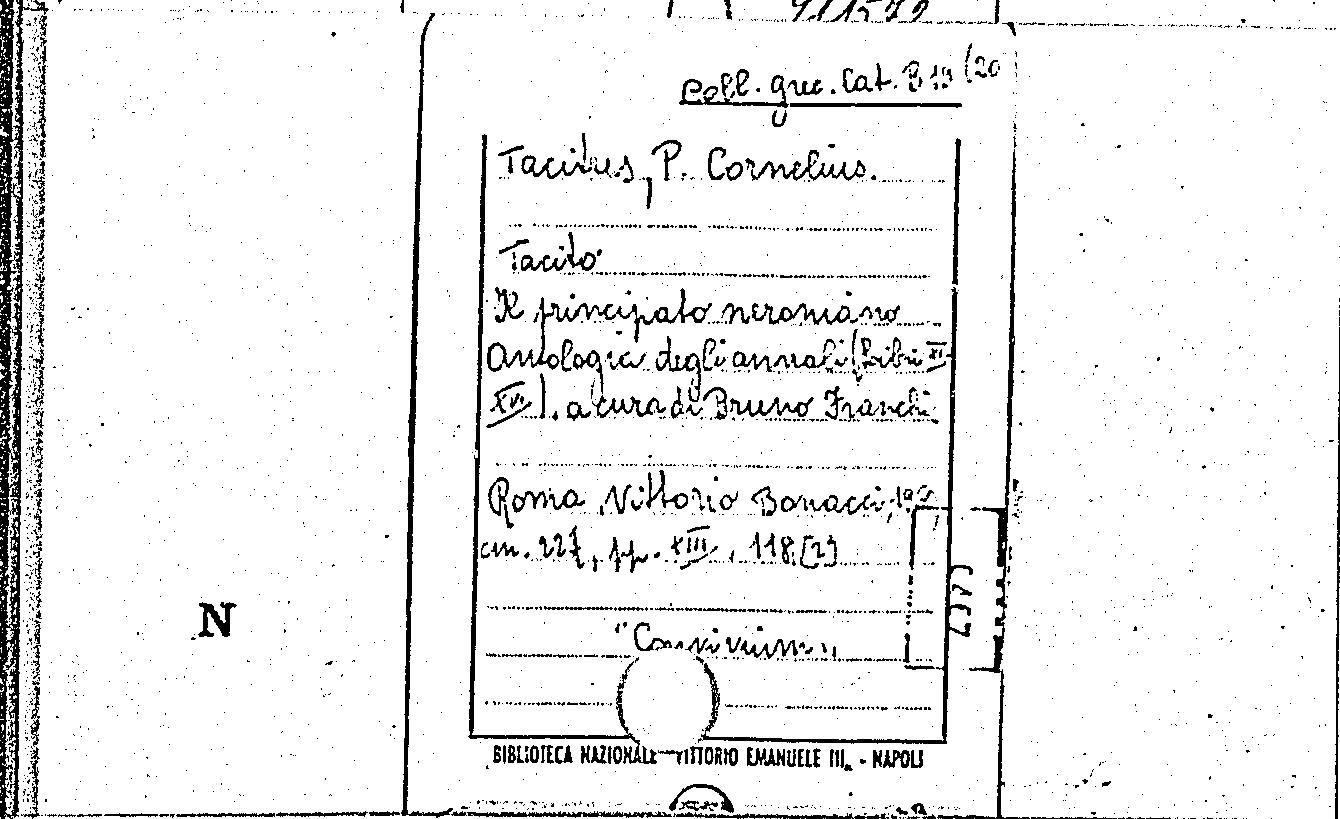 Coll. grec. Cat. B 19 (20
Tacitus, P. Cornelius.
Tacito
Il principato neroniano
Antologia degli annali (Libri XI-
XVI). a cura di Bruno Franchi
Roma, Vittorio Bonacci,
cm. 22½, pp. XIII, 118, [2]
"Convivium"
N
BIBLIOTECA NAZIONALE VITTORIO EMANUELE III. - NAPOLI